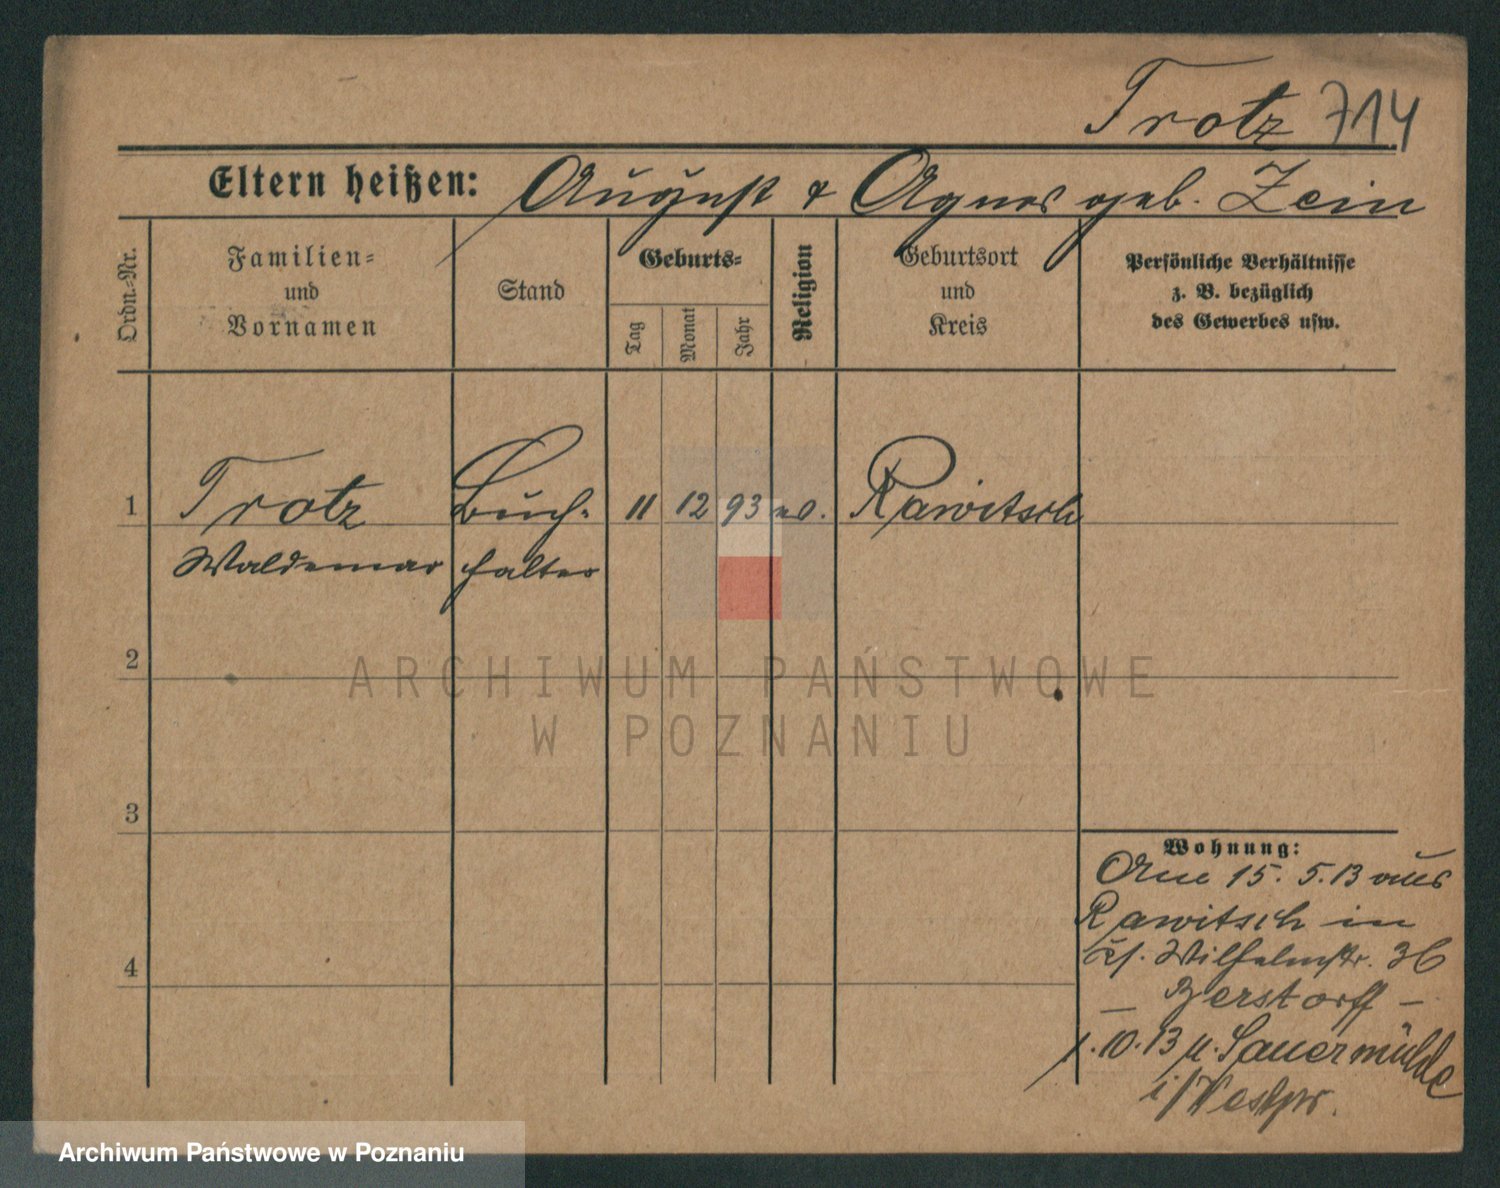 Trotz 714
Eltern heißen: August & Agnes geb. Zein
Ordn.-Nr.
Familien-
und
Vornamen
Stand
Geburts-
Tag
Monat
Jahr
Religion
Geburtsort
und
Kreis
Persönliche Verhältnisse
z. B. bezüglich
des Gewerbes usw.
1 Trotz Buch- 11 12 93 ev. Rawitsch
Waldemar halter
2
3
4
Wohnung:
Am 15. 5. 13 aus
Rawitsch in
Wilhelmstr. 36
– Berstorff –
1. 10. 13 n. Sauermühle
i/Westpr.
ARCHIWUM PAŃSTWOWE
W POZNANIU
Archiwum Państwowe w Poznaniu